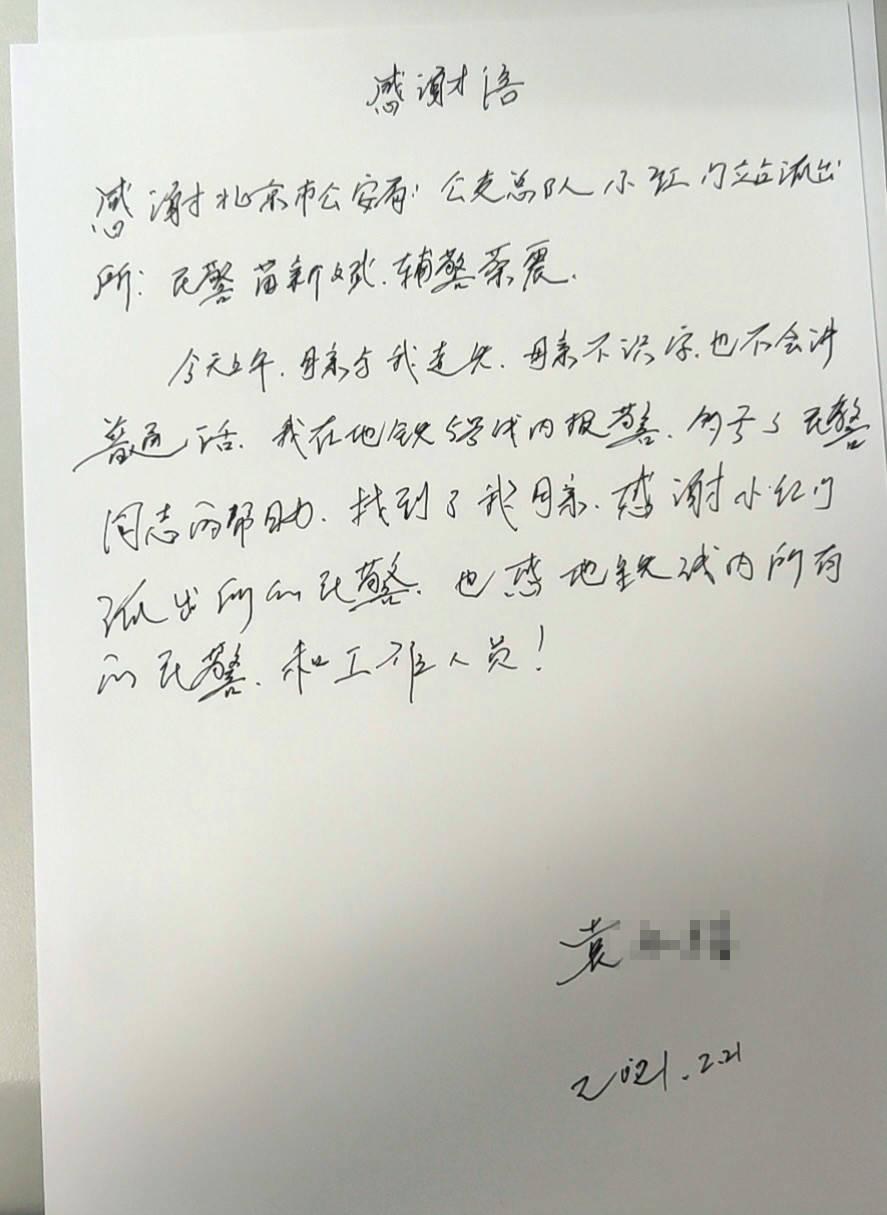 感谢语
感谢北京市公安局 公交总队小红门站派出
所: 民警苗新斌.辅警荣震.
今天上午.母亲与我走失.母亲不识字.也不会讲
普通话.我在地铁5号线内报警. 得了民警
同志的帮助.找到了我母亲.感谢小红门
派出所的民警.也感地铁线内所有
的民警.和工作人员!
袁
2021.2.21